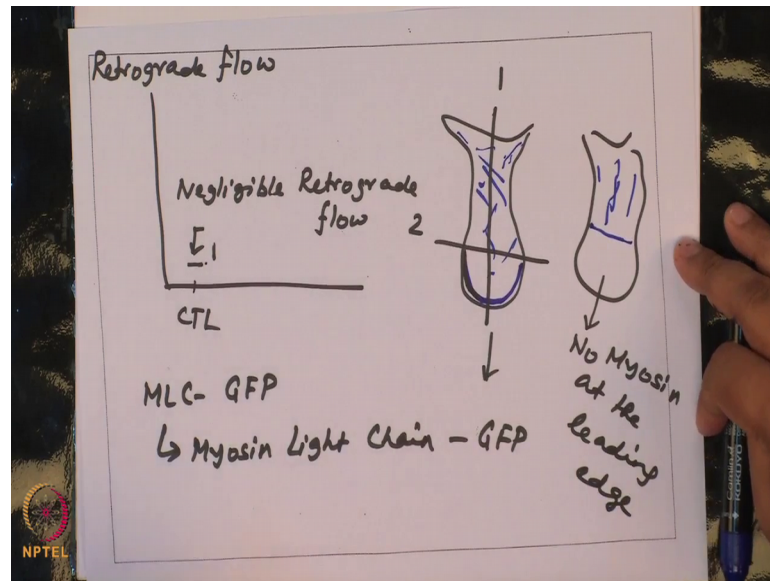 Retrograde flow
Negligible Retrograde
flow
.1
CTL
1
2
MLC- GFP
↳ Myosin Light Chain - GFP
No Myosin
at the
leading
edge
NPTEL
Camlin
KOKUYO